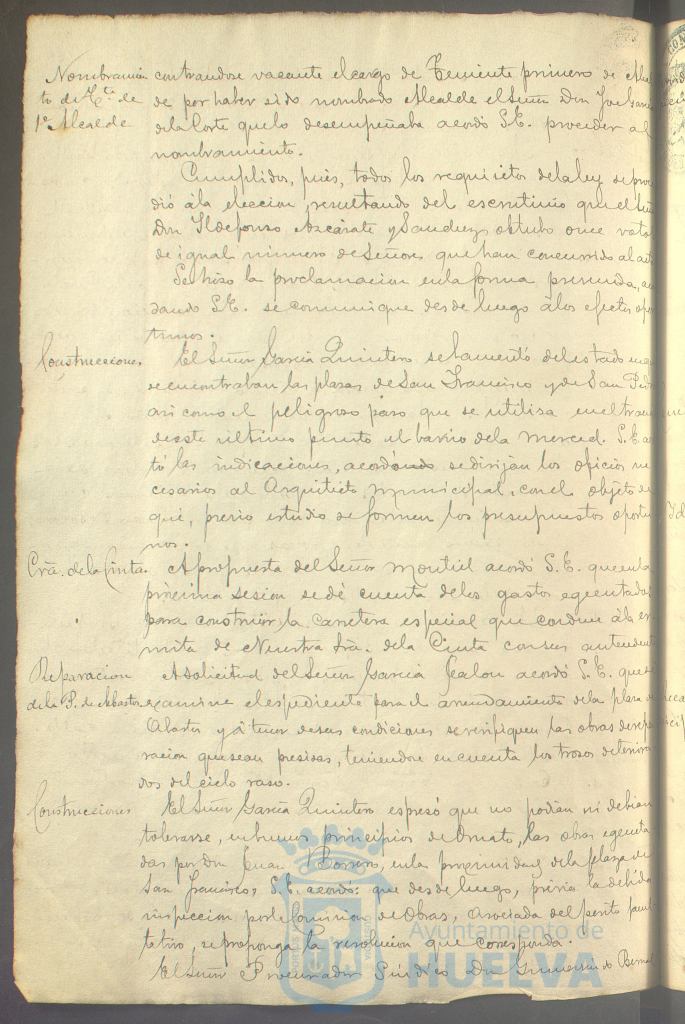 Nombramien contrandose vacante el cargo de Teniente primero de Alcal
to de Tte. de de por haber sido nombrado Alcalde el Señor Don José Garcia
1º Alcalde de la Corte que lo desempeñaba acordó S.E. proceder al
nombramiento.
Cumplidos, pues, todos los requisitos de la ley se proce
dió á la eleccion, resultando del escrutinio que el Señor
Don Ildefonso Azcárate y Sanduz obtubo once votos
de igual número de Señores que han concurrido al acto
Se hizo la proclamacion en la forma prevenida, acor
dando S.E. se comunique desde luego á los efectos opor
tunos.
Construcciones El Señor Garcia Quintero se lamentó del estado en que
se encontraban las plazas de San Francisco y de San Pedro
asi como el peligroso paso que se utiliza en el
desde este ultimo punto al barrio de la Merced. S.E. acep
tó las indicaciones, acordó se dirijan los oficios ne
cesarios al Arquitecto municipal, con el objeto de
que, previo estudio se formen los presupuestos oportu
nos.
Crrª. de la Cinta. A propuesta del Señor Montiel acordó S.E. que en la
próxima sesion se dé cuenta de los gastos egecutados
para construir la carretera especial que conduce á la er
mita de Nuestra Sra. de la Cinta con sus antecedent
Reparacion A solicitud del Señor Garcia Jalon acordó S.E. que se
de la P. de Abastos. examine el espediente para el arrendamiento de la plaza de
Abastos y á tenor de sus condiciones se verifiquen las obras de repa
racion que sean presisas, teniendose en cuenta los trozos deteriora
dos del cielo raso.
Construcciones El Señor Garcia Quintero espresó que no podian ni debian
tolerarse, en buenos principios de Ornato, las obras egecuta
das por Don Juan Borrero, en la proximidad de la plaza de
San Francisco, S.E. acordó: que desde luego, previa la debida
inspeccion, por la Comision de Obras, asociada del perito
se proponga la resolucion que corresponda.
El Señor Procurador Sindico Don Gumersindo Bernal
Ayuntamiento de
HUELVA